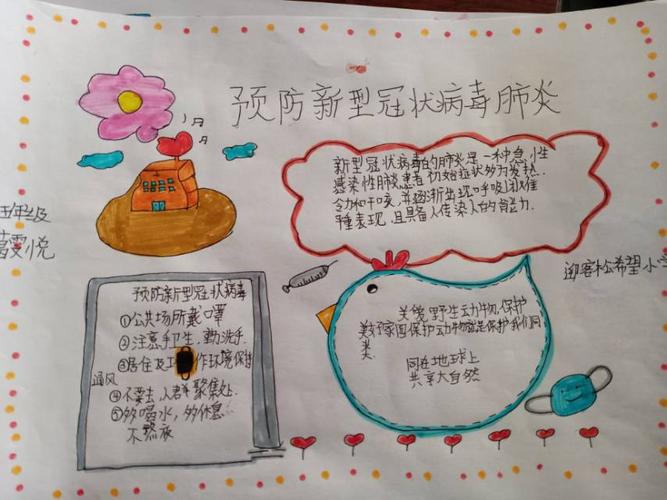 预防新型冠状病毒肺炎
新型冠状病毒的肺炎是一种急性
感染性肺炎患者初始症状多为发热.
乏力和干咳,并逐渐出现呼吸困难
等表现,且具备人传染人的能力.
五年级
雯悦
迎客松希望小学
预防新型冠状病毒
①公共场所戴口罩
②注意手卫生,勤洗手.
③居住及工作环境保持
通风
④不要去人群聚集处.
⑤多喝水,多休息
不熬夜
关爱野生动物,保护
美好家园保护动物就是保护我们同
类
同在地球上
共享大自然